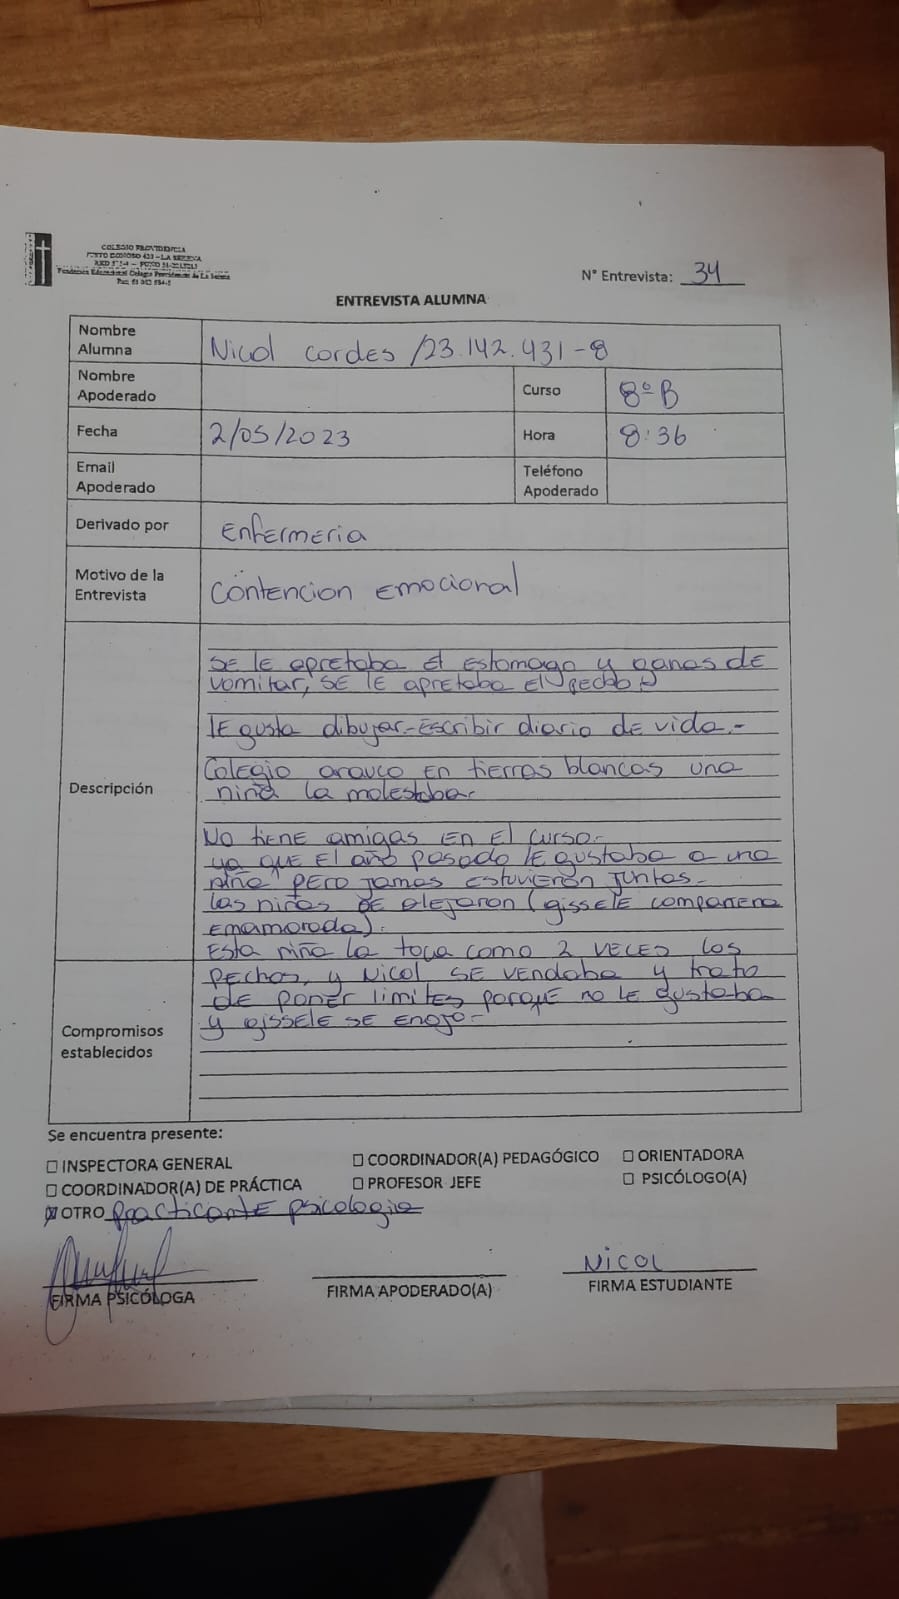 COLEGIO PROVIDENCIA
N° Entrevista: 34
ENTREVISTA ALUMNA
Nombre Alumna Nicol cordes /23.142.431-8
Nombre Apoderado
Curso 8º B
Fecha 2/05/2023
Hora 8:36
Email Apoderado
Teléfono Apoderado
Derivado por Enfermeria
Motivo de la Entrevista Contencion Emocional
Descripción
SE le apretaba El estomago y ganas de
vomitar, SE le apretaba El pecho
le gusta dibujar-Escribir diario de vida.-
Colegio arauco En tierras blancas una
niña la molestaba-
No tiene amigas En El curso-
ya que El año pasado le gustaba a una
niña pero jamas estuvieron juntas-
las niñas se alejaron (gissele compañera
Enamorada).
Esta niña la toca como 2 veces los
pechos, y Nicol se vendaba y trato
de poner limites porque no le gustaba
y gissele se enojo-
Compromisos establecidos
Se encuentra presente:
☐ INSPECTORA GENERAL ☐ COORDINADOR(A) PEDAGÓGICO ☐ ORIENTADORA
☐ COORDINADOR(A) DE PRÁCTICA ☐ PROFESOR JEFE ☐ PSICÓLOGO(A)
☒ OTRO Practicante psicologia
Nicol
FIRMA PSICÓLOGA FIRMA APODERADO(A) FIRMA ESTUDIANTE